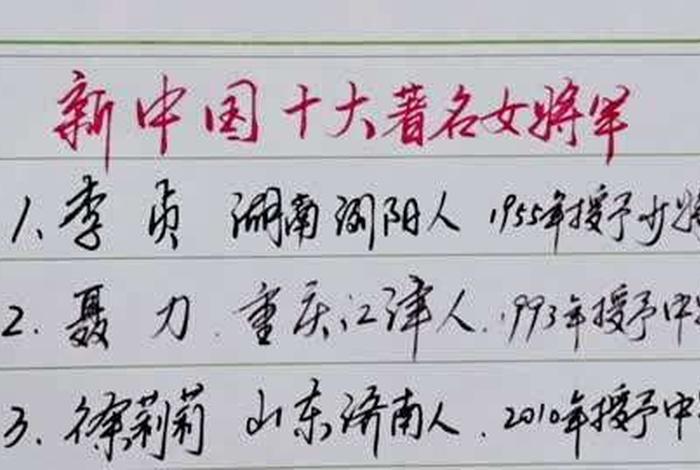 新中国十大著名女将军
1、李贞 湖南浏阳人 1955年授予少将
2.聂力.重庆江津人.1993年授予中
3.徐莉莉 山东济南人.2010年授予中